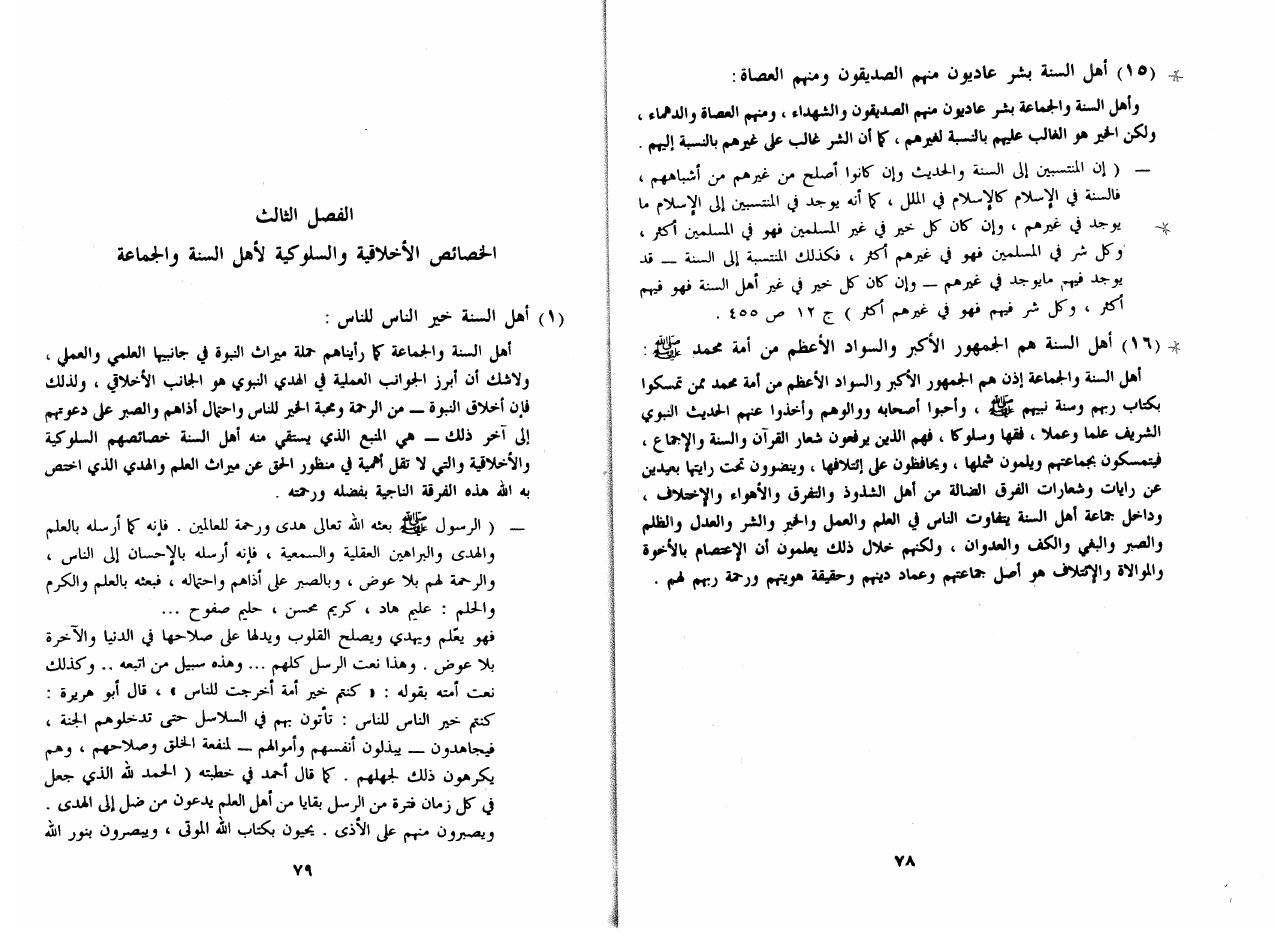 (١٥) أهل السنة بشر عاديون منهم الصديقون ومنهم العصاة :
وأهل السنة والجماعة بشر عاديون منهم الصديقون والشهداء ، ومنهم العصاة والدهماء ،
ولكن الخير هو الغالب عليهم بالنسبة لغيرهم ، كما أن الشر غالب على غيرهم بالنسبة إليهم .
— ( إن المنتسبين إلى السنة والحديث وإن كانوا أصلح من غيرهم من أشباههم ،
فالسنة في الإسلام كالإسلام في الملل ، كما أنه يوجد في المنتسبين إلى الإسلام ما
يوجد في غيرهم ، وإن كان كل خير في غير المسلمين فهو في المسلمين أكثر ،
وكل شر في المسلمين فهو في غيرهم أكثر ، فكذلك المنتسبة إلى السنة — قد
يوجد فيهم مايوجد في غيرهم — وإن كان كل خير في غير أهل السنة فهو فيهم
أكثر ، وكل شر فيهم فهو في غيرهم أكثر ) ج ١٢ ص ٤٥٥ .
(١٦) أهل السنة هم الجمهور الأكبر والسواد الأعظم من أمة محمد ﷺ :
أهل السنة والجماعة إذن هم الجمهور الأكبر والسواد الأعظم من أمة محمد ممن تمسكوا
بكتاب ربهم وسنة نبيهم ﷺ ، وأحبوا أصحابه ووالوهم وأخذوا عنهم الحديث النبوي
الشريف علما وعملا ، فقها وسلوكا ، فهم الذين يرفعون شعار القرآن والسنة والإجماع ،
فيتمسكون بجماعتهم ويلمون شملها ، ويحافظون على إئتلافها ، وينضوون تحت رايتها بعيدين
عن رايات وشعارات الفرق الضالة من أهل الشذوذ والتفرق والأهواء والإختلاف ،
وداخل جماعة أهل السنة يتفاوت الناس في العلم والعمل والخير والشر والعدل والظلم
والصبر والبغي والكف والعدوان ، ولكنهم خلال ذلك يعلمون أن الإعتصام بالأخوة
والموالاة والإئتلاف هو أصل جماعتهم وعماد دينهم وحقيقة هويتهم ورحمة ربهم لهم .
٧٨
الفصل الثالث
الخصائص الأخلاقية والسلوكية لأهل السنة والجماعة
(١) أهل السنة خير الناس للناس :
أهل السنة والجماعة كما رأيناهم حملة ميراث النبوة في جانبيها العلمي والعملي ،
ولاشك أن أبرز الجوانب العملية في الهدي النبوي هو الجانب الأخلاقي ، ولذلك
فإن أخلاق النبوة — من الرحمة ومحبة الخير للناس واحتمال أذاهم والصبر على دعوتهم
إلى آخر ذلك — هي المنبع الذي يستقي منه أهل السنة خصائصهم السلوكية
والأخلاقية والتي لا تقل أهمية في منظور الحق عن ميراث العلم والهدي الذي اختص
به الله هذه الفرقة الناجية بفضله ورحمته .
— ( الرسول ﷺ بعثه الله تعالى هدى ورحمة للعالمين . فإنه كما أرسله بالعلم
والهدى والبراهين العقلية والسمعية ، فإنه أرسله بالإحسان إلى الناس ،
والرحمة لهم بلا عوض ، وبالصبر على أذاهم واحتماله ، فبعثه بالعلم والكرم
والحلم : عليم هاد ، كريم محسن ، حليم صفوح ...
فهو يعّلم ويهدي ويصلح القلوب ويدلها على صلاحها في الدنيا والآخرة
بلا عوض . وهذا نعت الرسل كلهم ... وهذه سبيل من اتبعه .. وكذلك
نعت أمته بقوله : « كنتم خير أمة أخرجت للناس » ، قال أبو هريرة :
كنتم خير الناس للناس : تأتون بهم في السلاسل حتى تدخلوهم الجنة ،
فيجاهدون — يبذلون أنفسهم وأموالهم — لمنفعة الخلق وصلاحهم ، وهم
يكرهون ذلك لجهلهم . كما قال أحمد في خطبته ( الحمد لله الذي جعل
في كل زمان فترة من الرسل بقايا من أهل العلم يدعون من ضل إلى الهدى .
ويصبرون منهم على الأذى . يحيون بكتاب الله الموتى ، ويبصرون بنور الله
٧٩